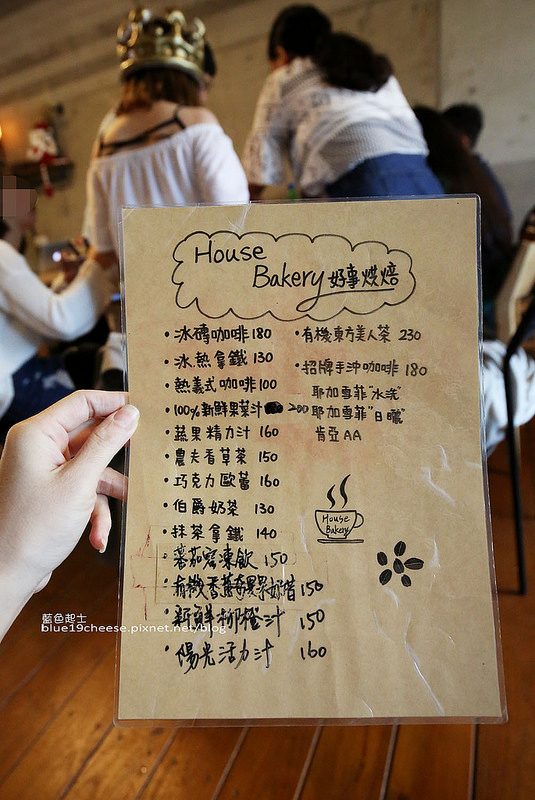 House
Bakery 好事烘焙
・冰磚咖啡 180
・冰.熱拿鐵 130
熱義式咖啡 100
・100%新鮮果菜汁 200
・蔬果精力汁 160
・農夫香草茶 150
・巧克力歐蕾 160
・伯爵奶茶 130
・抹茶拿鐵 140
・蕃茄蜜凍飲 150
・有機香蕉奶昔 150
・新鮮柳橙汁 150
・陽光活力汁 160
・有機東方美人茶 230
・招牌手沖咖啡 180
耶加雪菲"水洗"
耶加雪菲"日曬"
肯亞AA
House
Bakery
藍色起士
blue19cheese.pixnet.net/blog